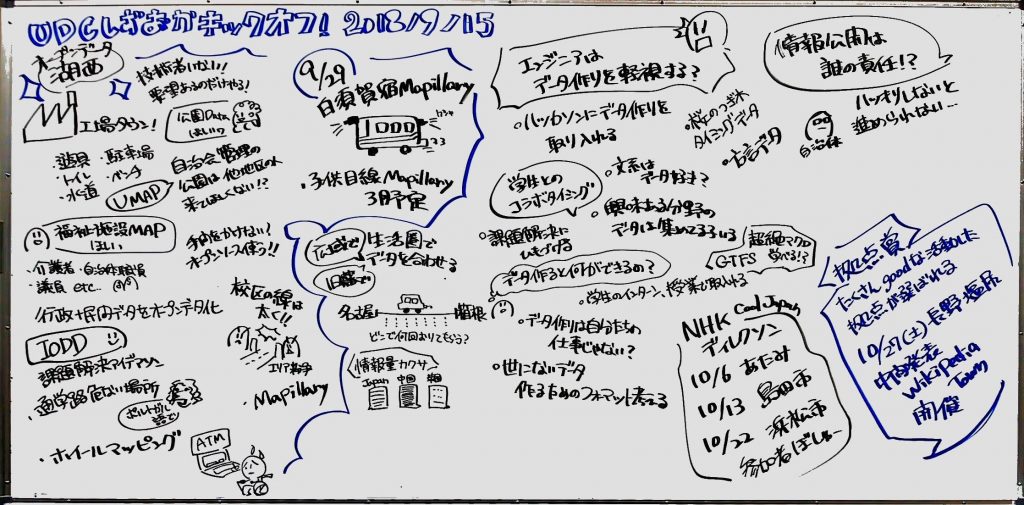 UDCしずおかキックオフ! 2018/9/15
オープンデータ
湖西
技術者いない!
要望あるのだけやる!
工場タウン!
公園Data
ほしい
・遊具 ・駐車場
・トイレ ・ベンチ
・水道
UMAP
自治会管理の
公園は他地区の人
来てほしくない!?
福祉施設MAP
ほしい
手間をかけない!
オープンソース使う!!
・介護者・自治体職員
・議員 etc...
行政+民間データをオープンデータ化
IODD
課題解決アイデアソン
・通学路危ない場所
ポルトガル
語で
・ホイールマッピング
ATM
校区の線は
太く!!
エリア紛争
・Mapillary
9/29
白須賀宿Mapillary
IODD
・子供目線Mapillary
3月予定
広域で
生活圏で
データを合わせる
旧藩で
名古屋
箱根
どこで何回おりてもらう?
情報量カクサ
Japan 中国 米国
エンジニアは
データ作りを軽視する?
・ハッカソンにデータ作りを
取り入れる
・桜のつぼみ
タイミングデータ
・方言データ
学生との
コラボタイミング
・文系は
データ好き?
・興味ある分野の
データは集めてるろいる
・課題解決に
ひもづける
超絶マクロ
GTFS 学べる!?
データ作ると何ができるの?
・学生のインターン、授業で取入れる
・データ作りは自分たちの
仕事じゃない?
・世にないデータ
作るためのフォーマット考える
情報公開は
誰の責任!?
ハッキリしないと
進められない...
自治体
NHK Cool Japan
ディレクソン
10/6 あたみ
10/13 島田市
10/22 浜松市
参加者ぼしゅー
拠点賞
たくさん goodな活動した
拠点が選ばれる
10/27(土) 長野 塩尻
中間発表
Wikipedia
Town
開催